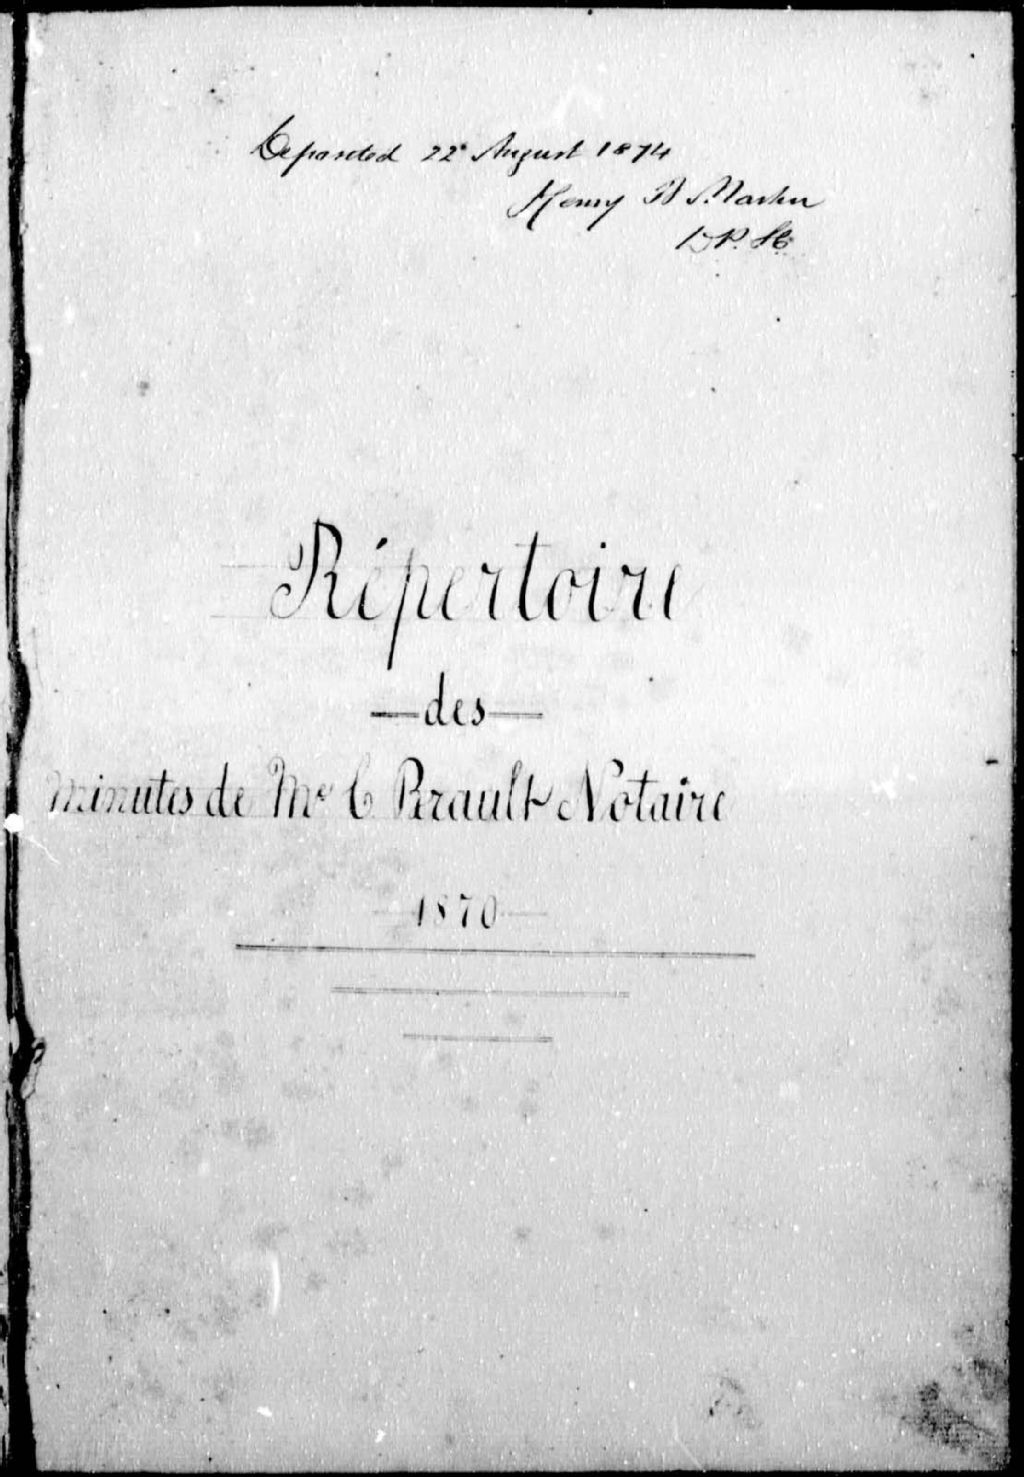 Deposited 22d August 1874
Henry
Répertoire
des
minutes de Me C Perault Notaire
1870